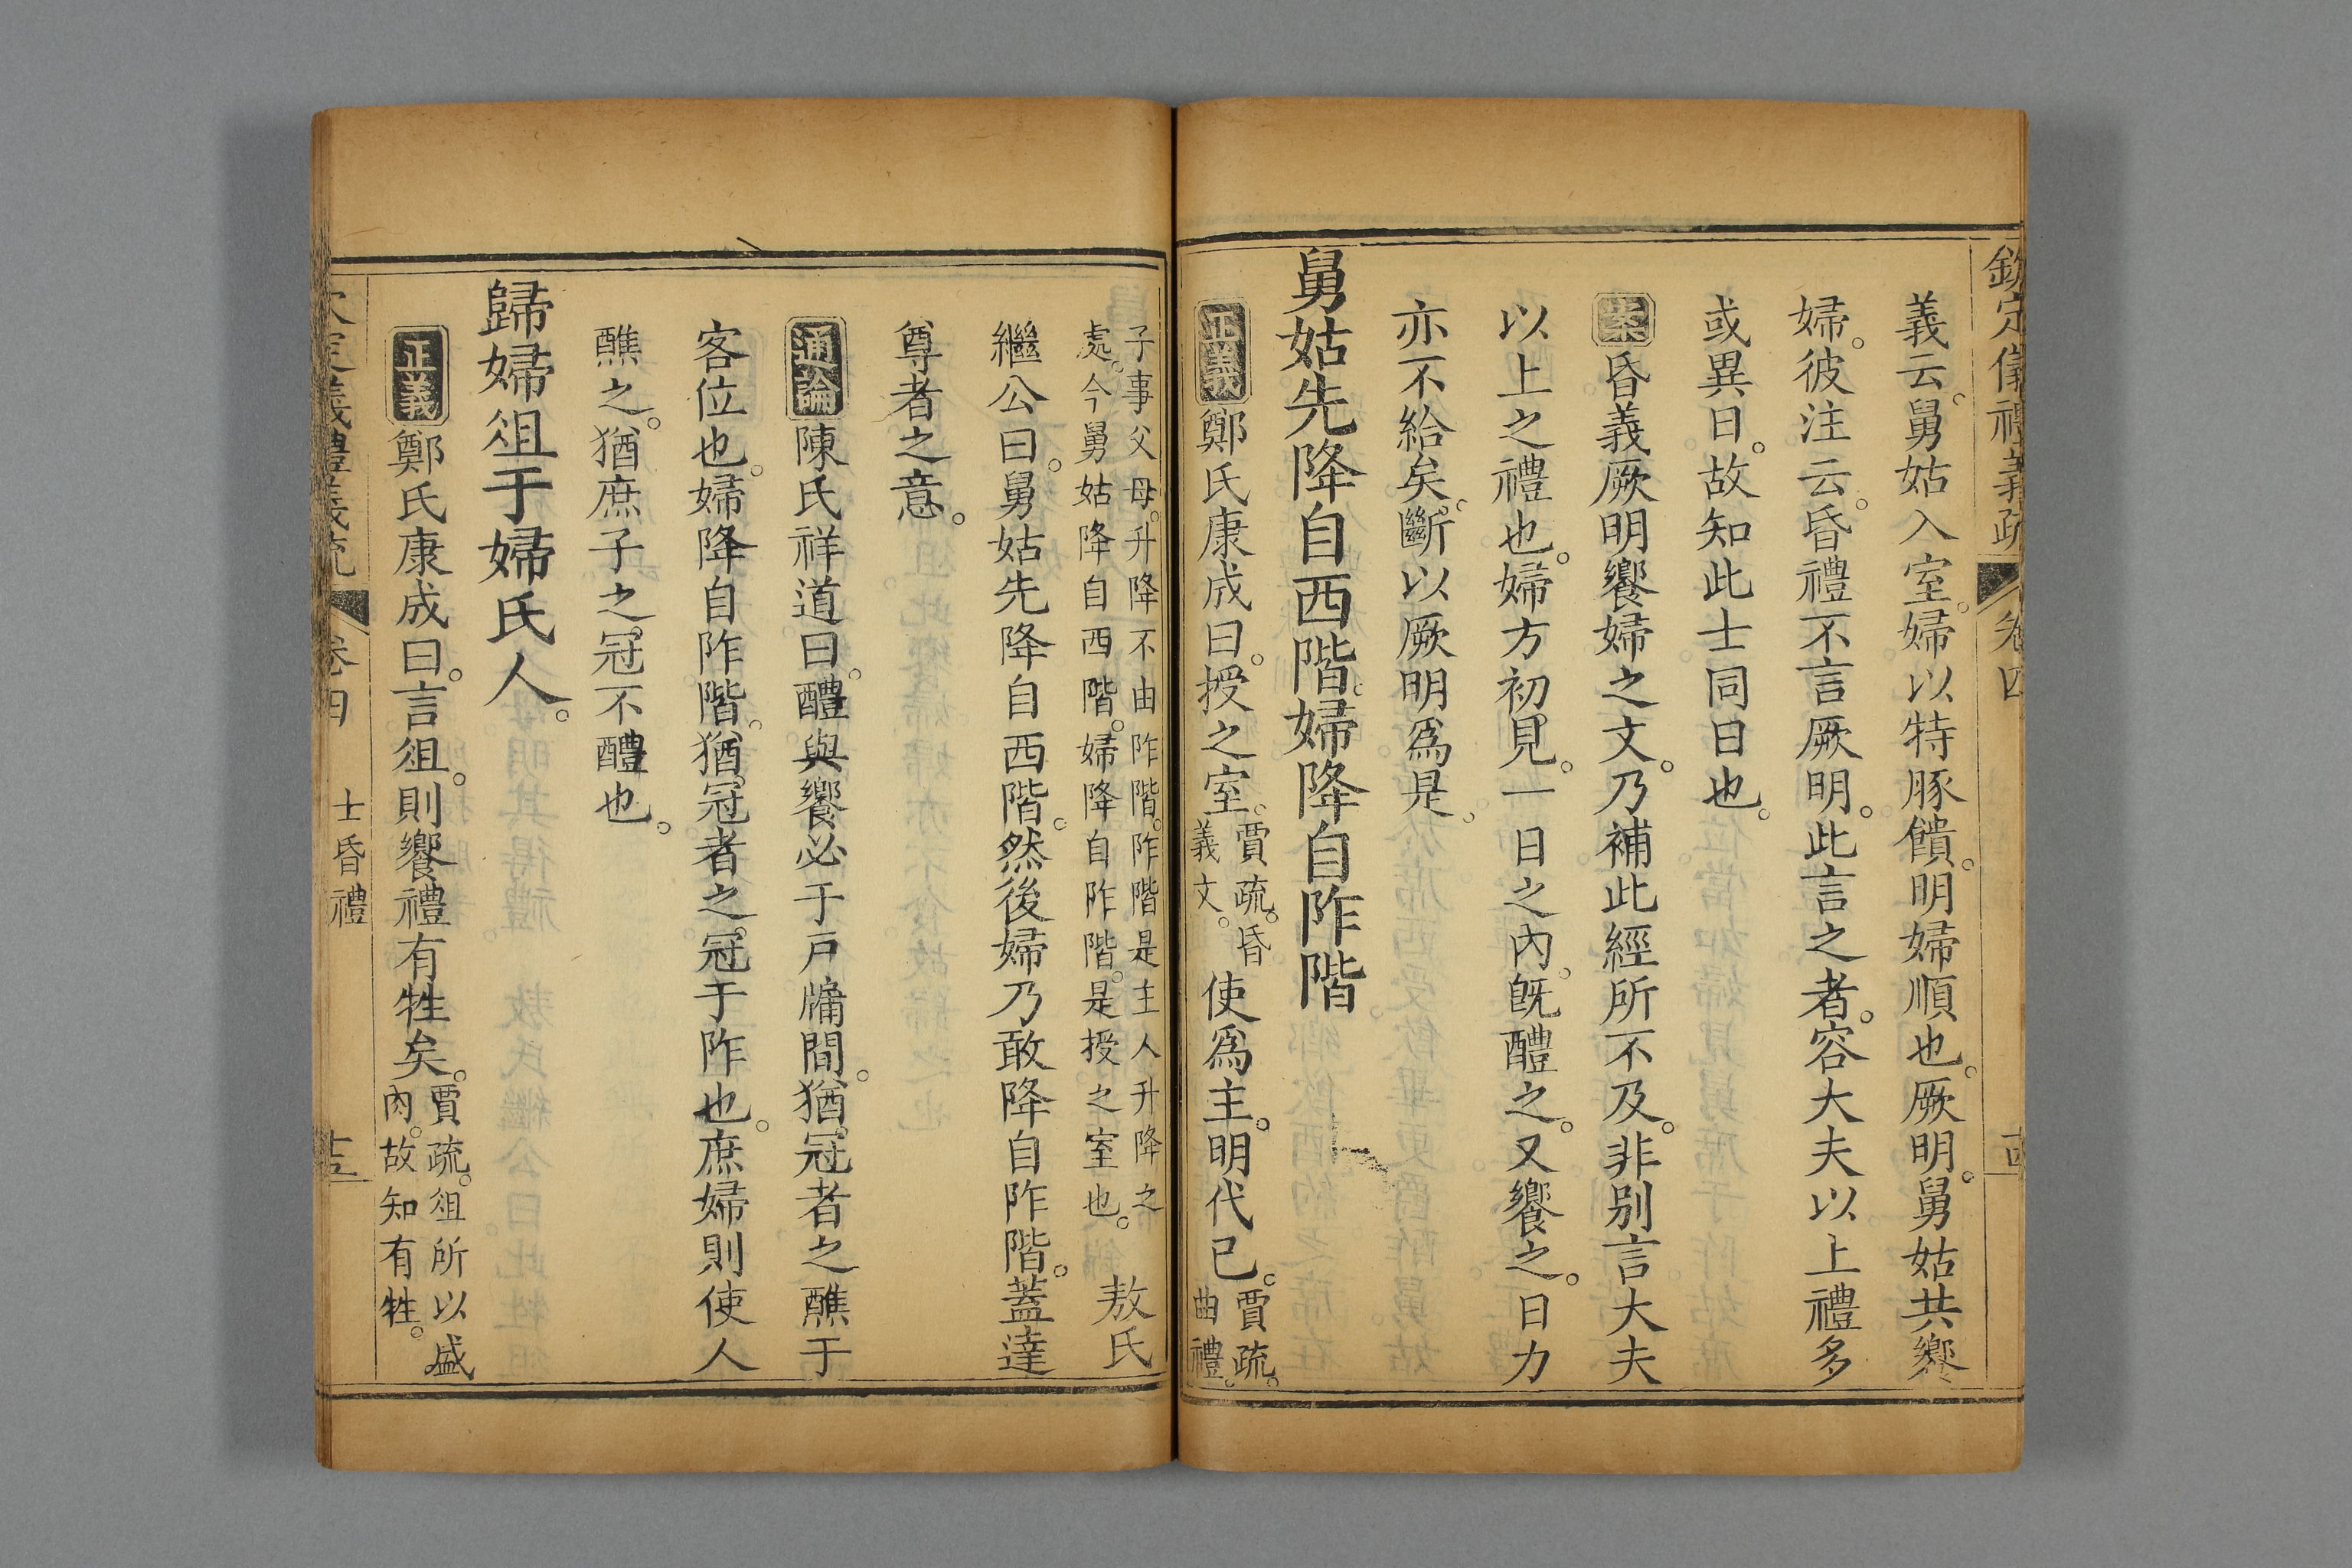 欽定儀禮義疏 卷四 十四
義云。舅姑入室。婦以特豚饋。明婦順也。厥明。舅姑共饗
婦。彼注云。昏禮不言厥明。此言之者。容大夫以上禮多
或異日。故知此士同日也。
案昏義厥明饗婦之文。乃補此經所不及。非別言大夫
以上之禮也。婦方初見。一日之內。旣醴之。又饗之。日力
亦不給矣。斷以厥明爲是。
舅姑先降自西階。婦降自阼階
正義鄭氏康成曰。授之室。賈疏。昏義文。使爲主。明代己。賈疏。曲禮。
子事父母。升降不由阼階。阼階是主人升降之
處。今舅姑降自西階。婦降自阼階。是授之室也。 敖氏
繼公曰。舅姑先降自西階。然後婦乃敢降自阼階。蓋達
尊者之意。
通論陳氏祥道曰。醴與饗必于戶牖間。猶冠者之醮于
客位也。婦降自阼階。猶冠者之冠于阼也。庶婦則使人
醮之。猶庶子之冠不醴也。
歸婦俎于婦氏人。
正義鄭氏康成曰。言俎。則饗禮有牲矣。賈疏。俎所以盛
內。故知有牲。
欽定義禮義疏 卷四 士昏禮 十五